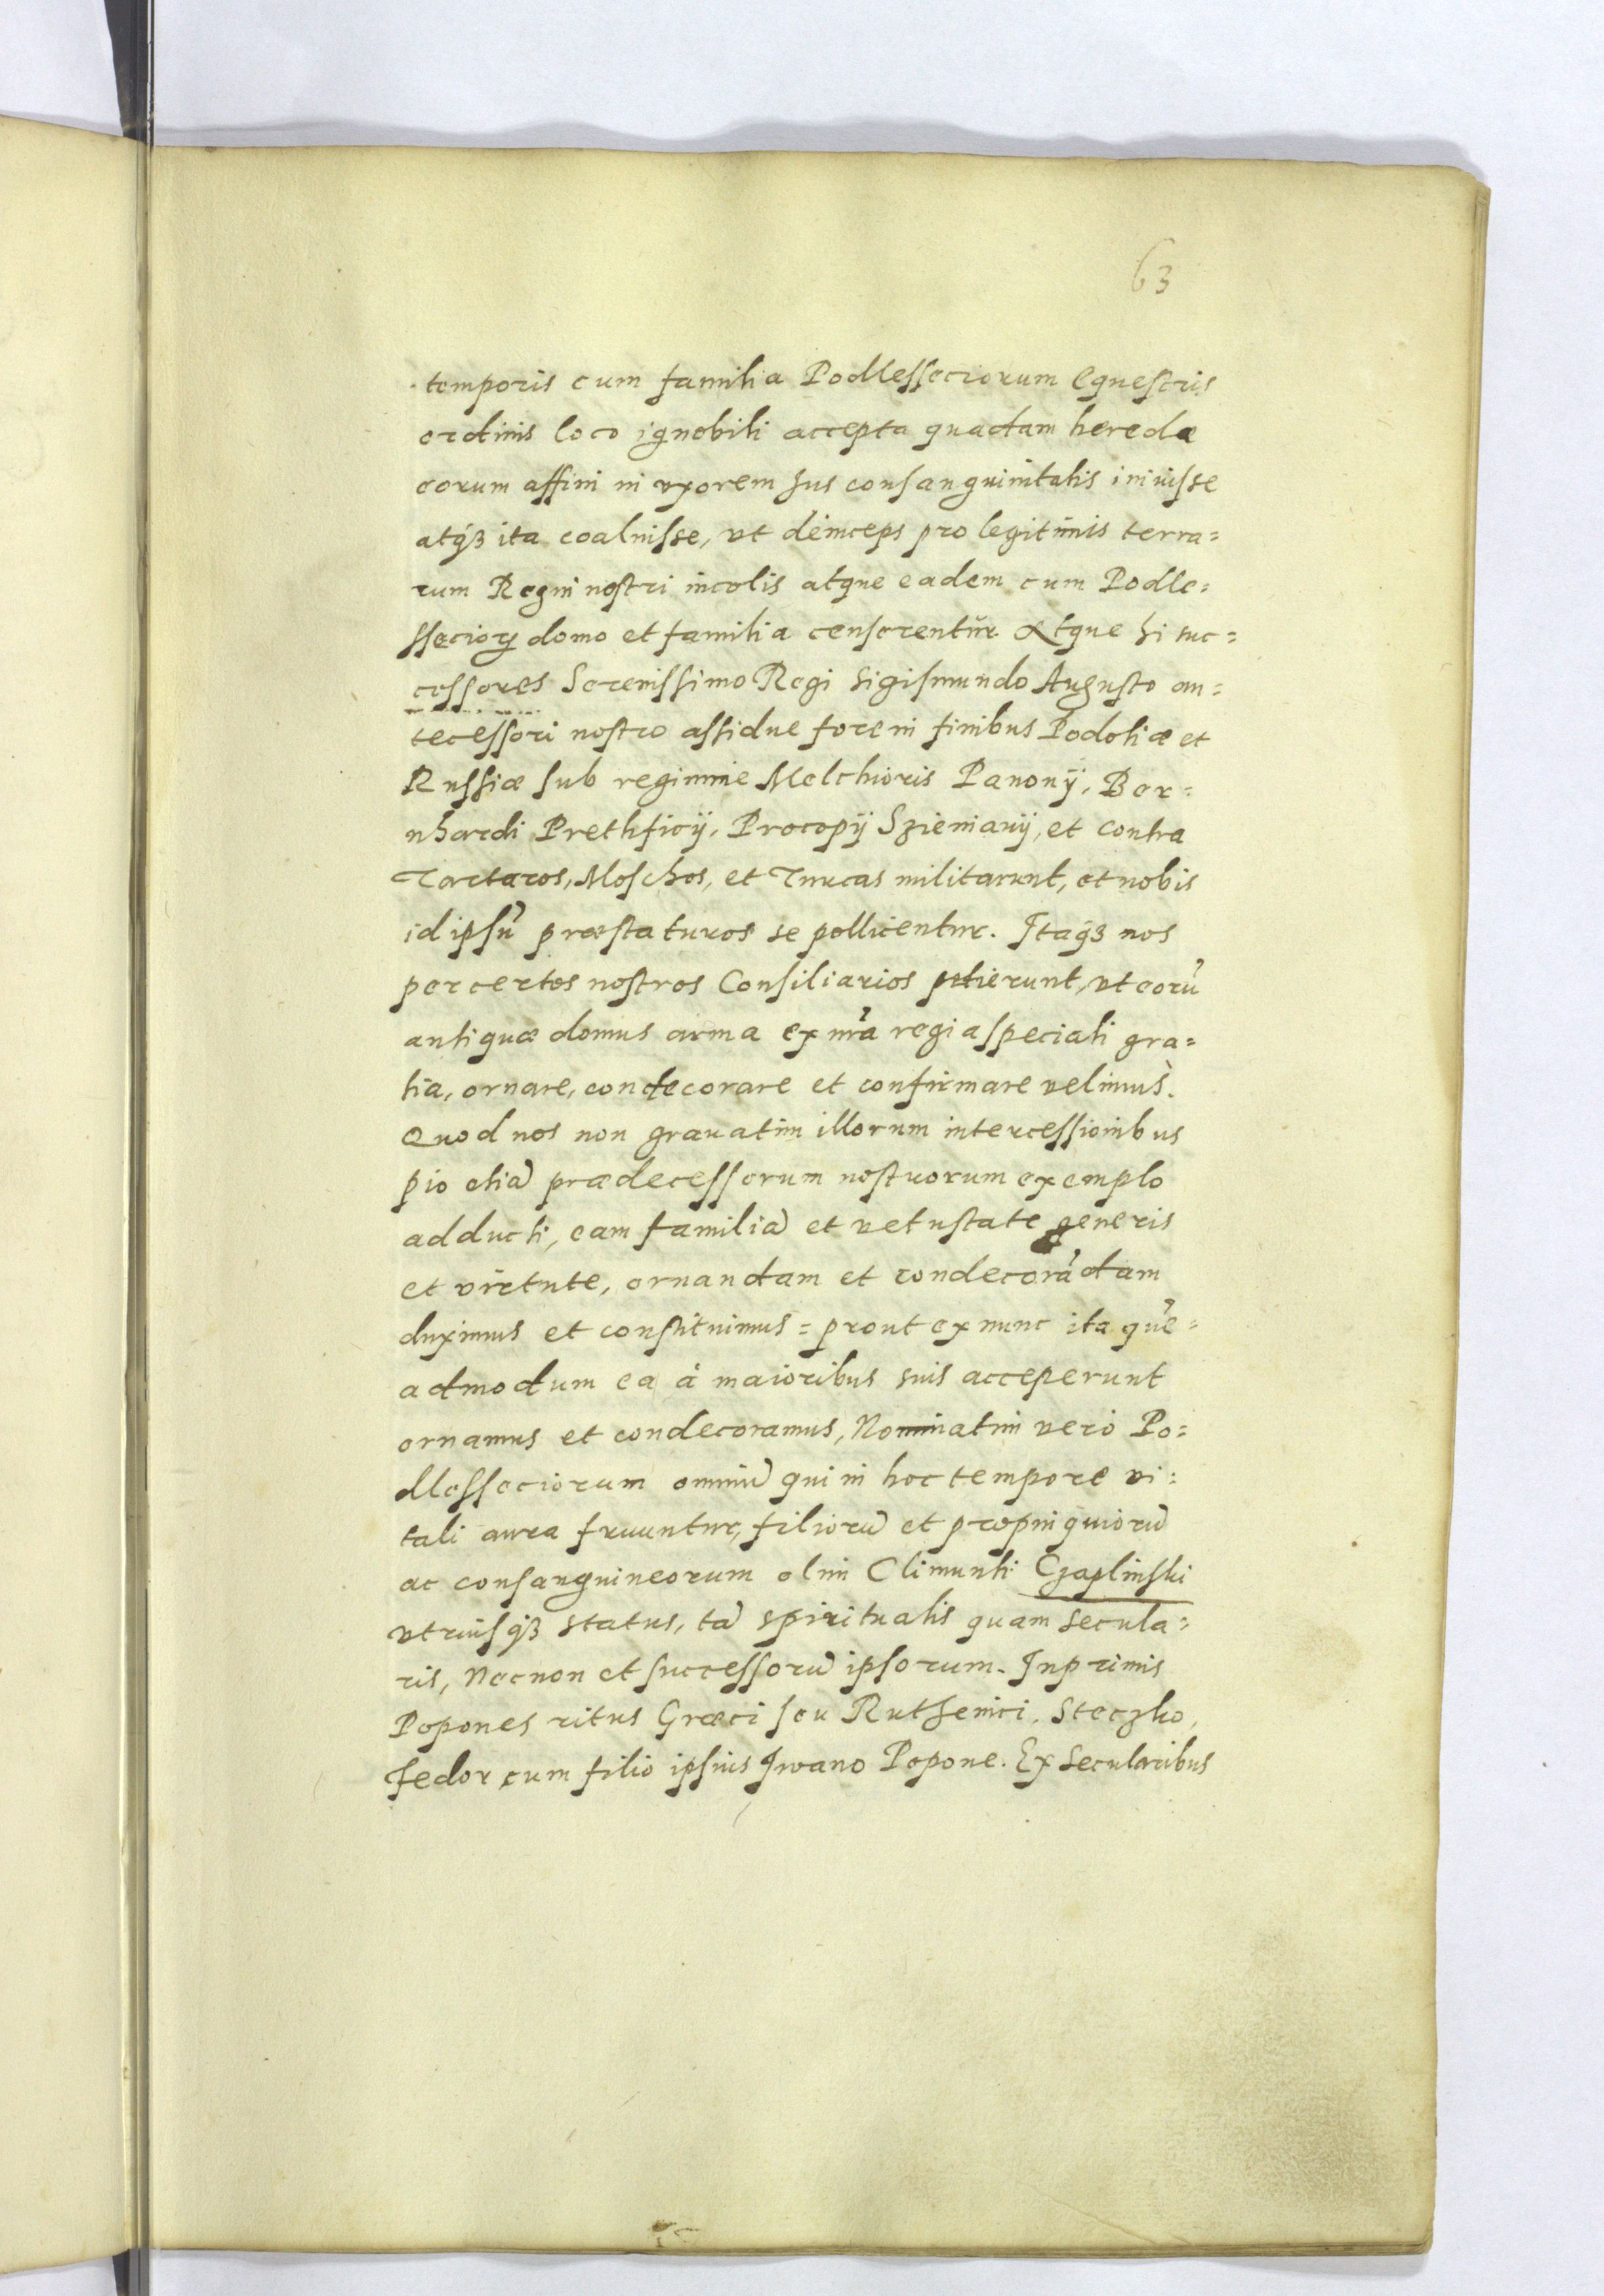 63
temporis cum familia Podlesseciorum equestris
ordinis loco ignobili accepta quadam hereda
eorum affini in vxorem jus consanguinitatis inivisse
atqȝ ita coaluisse, vt deinceps pro legitimis terra=
rum Regni nostri incolis atque eadem cum Podle=
sseciorꝝ domo et familia censerentur. Atque hi suc=
cessores Serenissimo Regi Sigismundo Augusto an=
tecessori nostro assidue fore in finibus Podoliæ et
Russiæ sub regimine Melchioris Panonij, Ber=
nhardi Prethficij, Procopij Szieniawij, et contra
Tartaros, Moschos, et Turcas militarunt, et nobis
id ipsũ præstaturos se pollicentur. Itaqȝ nos
per certos nostros Consiliarios petierunt, vt eorũ
antiquæ domus arma ex nr̃a regia speciali gra=
tia, ornare, condecorare et confirmare velimus.
Quod nos non grauatim illorum intercessionibus
pio etiã prædecessorum nostrorum exemplo
adducti, eam familiã et vetustate generis
et virtute, ornandam et condecorãdam
duximus et constituimus = prout ex nunc ita quẽ=
admodum ea à maioribus suis acceperunt
ornamus et condecoramus, Nominatim vero Po=
dlesseciorum omniũ qui in hoc tempore vi=
tali aura fruuntur, filiorũ et propinquiorũ
ac consanguineorum olim Climunti Czaplinski
vtriusqȝ status, tã spiritualis quam secula=
ris, Necnon et successorũ ipsorum. Inprimis
Popones ritus Græci seu Ruthenici, Steczko,
Fedor cum filio ipsius Iwano Popone. Ex secularibus